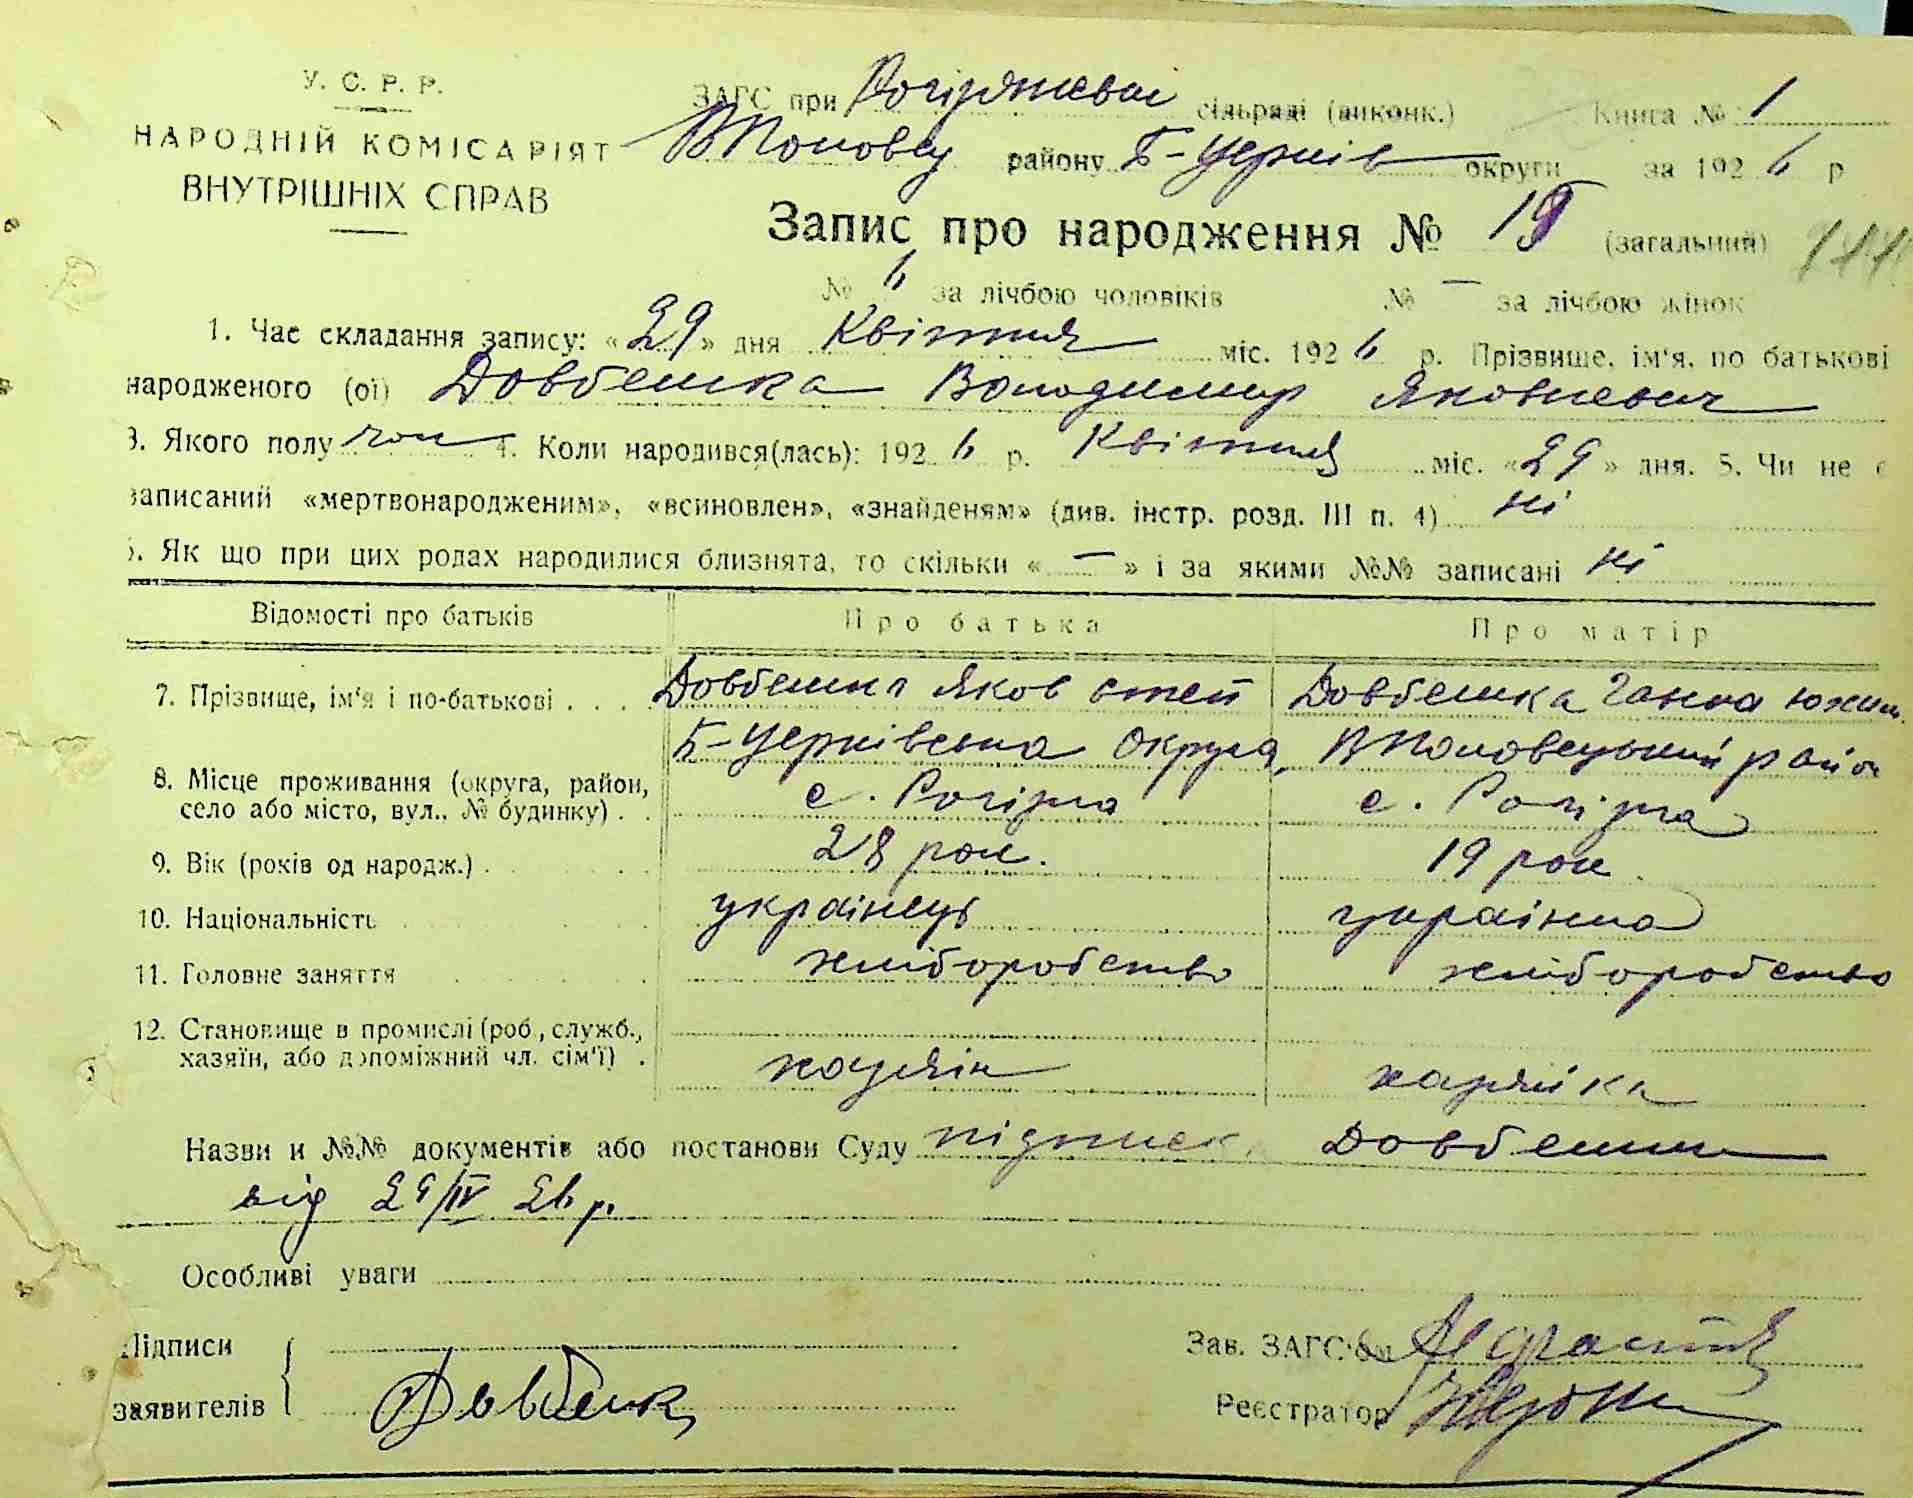 У. С. Р. Р.
НАРОДНІЙ КОМІСАРІЯТ
ВНУТРІШНІХ СПРАВ
ЗАГС при сільраді (виконк.) Книга № 1
району Б-Церків округи за 1926 р
Запис про народження № 15 (загальний)
№ 6 за лічбою чоловіків № — за лічбою жінок
1. Час складання запису: «29» дня Квітня міс. 1926 р. Прізвище, ім'я, по батькові
народженого (ої) Довбешка Володимир Яковлевич
3. Якого полу чол 4. Коли народився(лась): 1926 р. Квітня міс. «29» дня. 5. Чи не є
записаний «мертвонародженим», «всиновлен», «знайденям» (див. інстр. розд. III п. 4) ні
6. Як що при цих родах народилися близнята, то скільки « — » і за якими №№ записані ні
Відомості про батьків Про батька Про матір
7. Прізвище, ім'я і по-батькові . . . . Довбешка Яков Степ Довбешка Ганна
Б-Церківська Округа, ВПоловецький район
8. Місце проживання (округа, район, село або місто, вул., № будинку) . . с. Рогізна с. Рогізна
9. Вік (років од народж.) 28 рок. 19 рок
10. Національність українець українка
11. Головне заняття хліборобство хліборобство
12. Становище в промислі (роб, служб., хазяїн, або допоміжний чл. сім'ї) . хазяїн хазяйка
Назви и №№ документів або постанови Суду підписк Довбешки
від 29/IV 26 р.
Особливі уваги
Підписи
заявителів Довбешка
Зав. ЗАГС'ом
Реєстратор